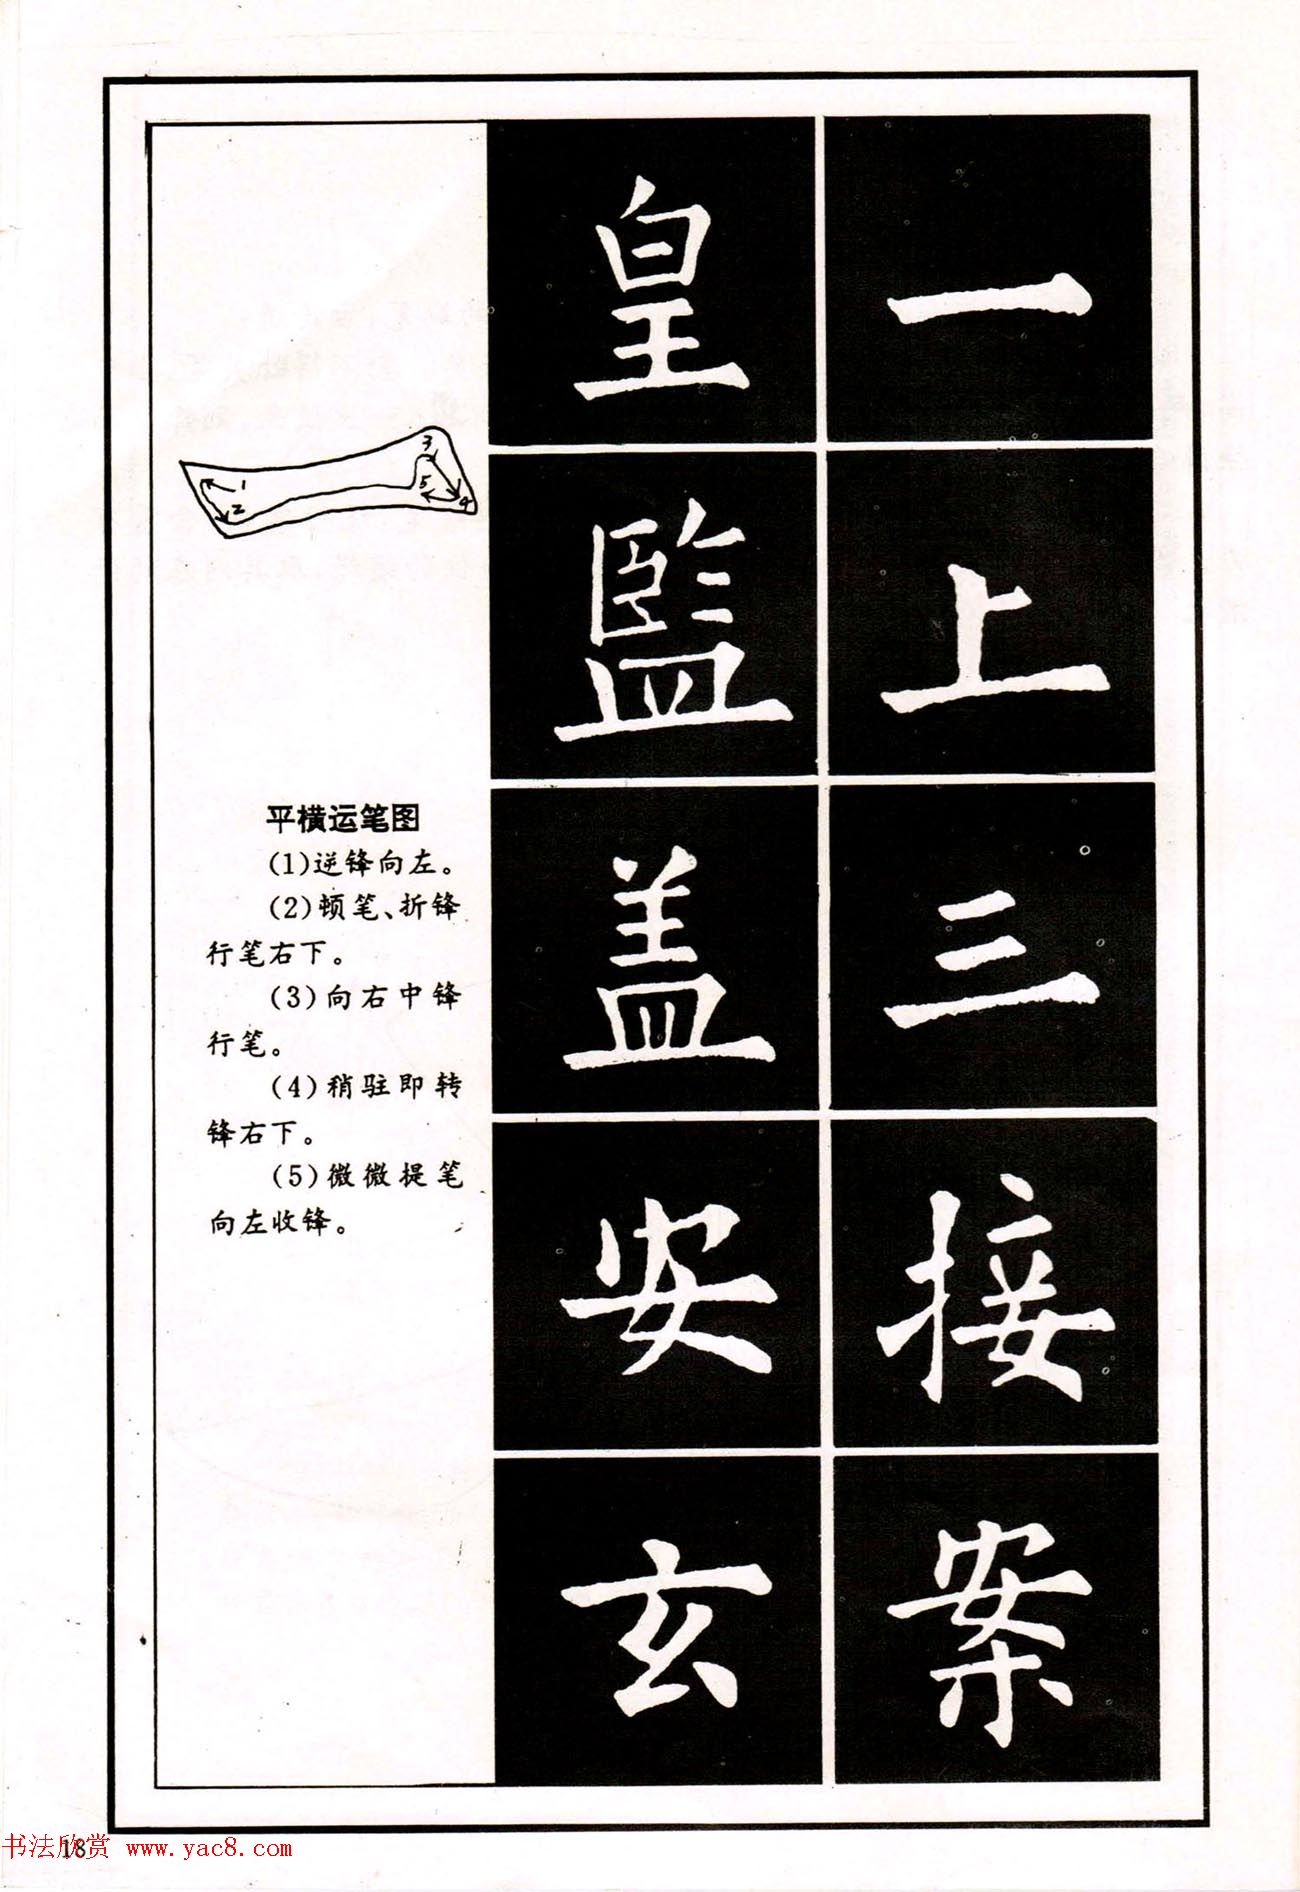 一
上
三
接
案
皇
監
盖
安
玄
1
2
3
4
5
平横运笔图
(1)逆锋向左。
(2)顿笔、折锋
行笔右下。
(3)向右中锋
行笔。
(4)稍驻即转
锋右下。
(5)微微提笔
向左收锋。
18
书法欣赏 www.yac8.com